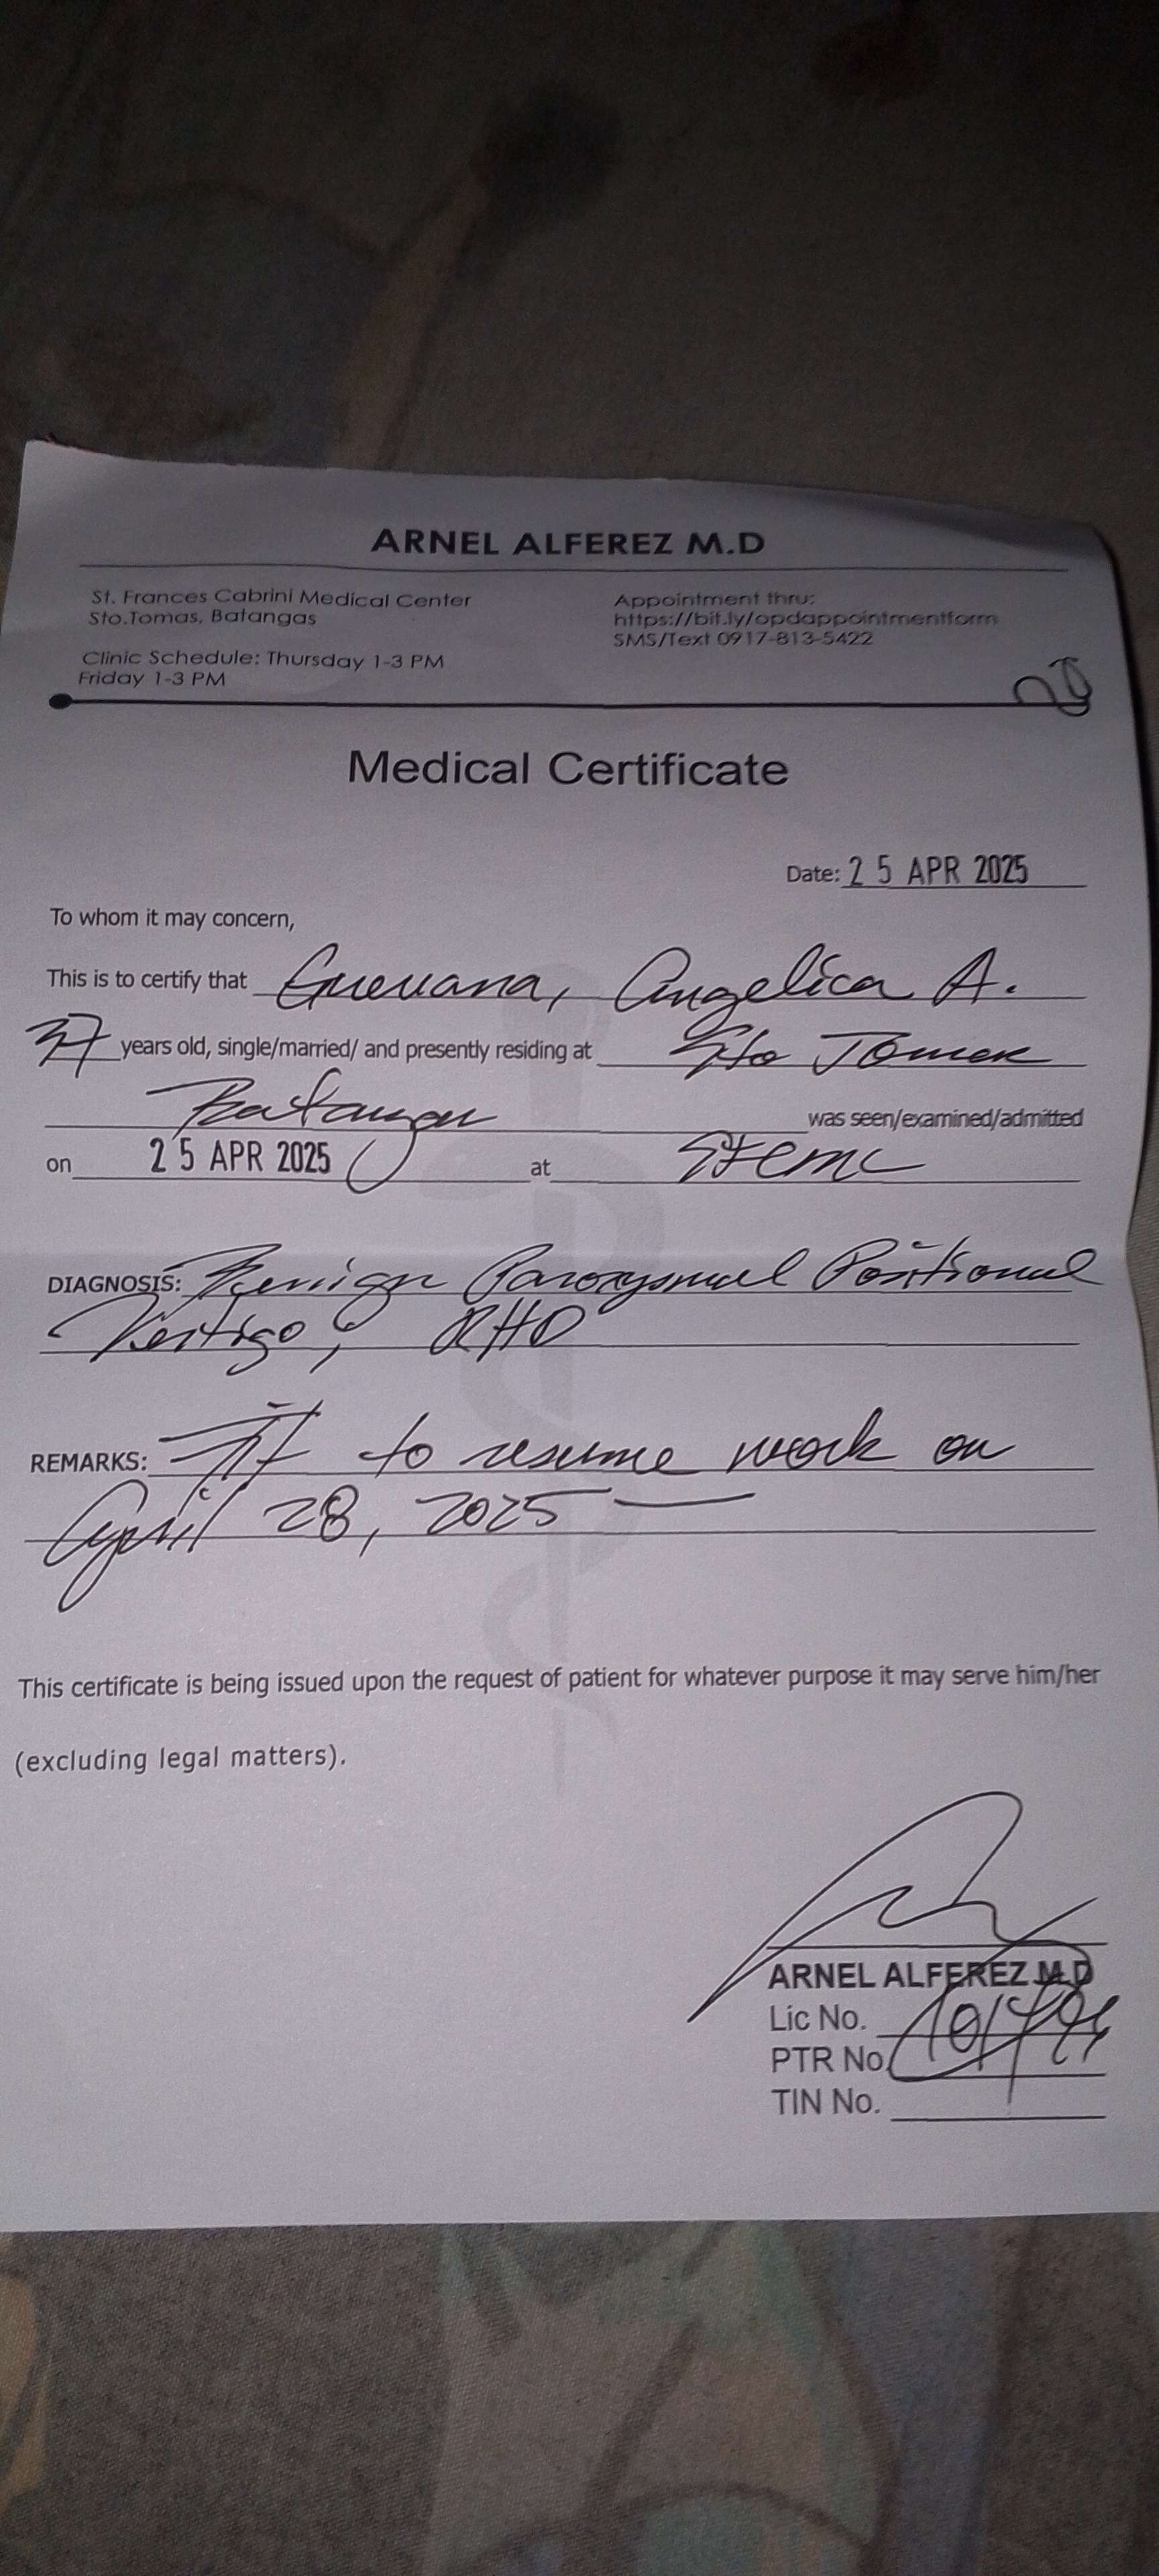 ARNEL ALFEREZ M.D
St. Frances Cabrini Medical Center
Sto.Tomas, Batangas
Clinic Schedule: Thursday 1-3 PM
Friday 1-3 PM
Appointment thru:
https://bit.ly/opdappointmentform
SMS/Text 0917-813-5422
Medical Certificate
Date: 25 APR 2025
To whom it may concern,
This is to certify that Angelica A.
37 years old, single/married/ and presently residing at Sto Tomas
Batangas was seen/examined/admitted
on 25 APR 2025 at SFCMC
DIAGNOSIS: Benign Paroxysmal Positional
Vertigo;
REMARKS: Fit to resume work on
April 28, 2025
This certificate is being issued upon the request of patient for whatever purpose it may serve him/her
(excluding legal matters).
ARNEL ALFEREZ M.D
Lic No.
PTR No.
TIN No.